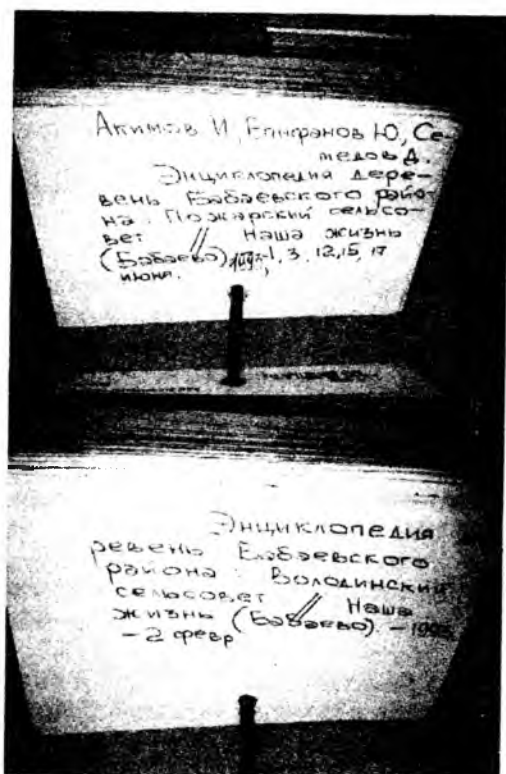 Акимов И, Епифанов Ю, Се-
медов А.
Энциклопедия дере-
вень Бабаевского райо-
на. Пожарский сельсо-
вет // Наша жизнь
(Бабаево) -1, 3. 12, 15, 17
июня.
Энциклопедия
ревень Бабаевского
района: Володинский
сельсовет // Наша
жизнь (Бабаево). – 1993
– 2 февр